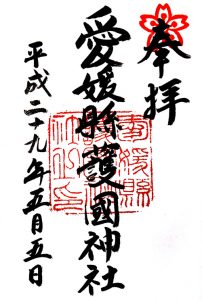 奉拝
愛媛縣護國神社
平成二十九年五月五日